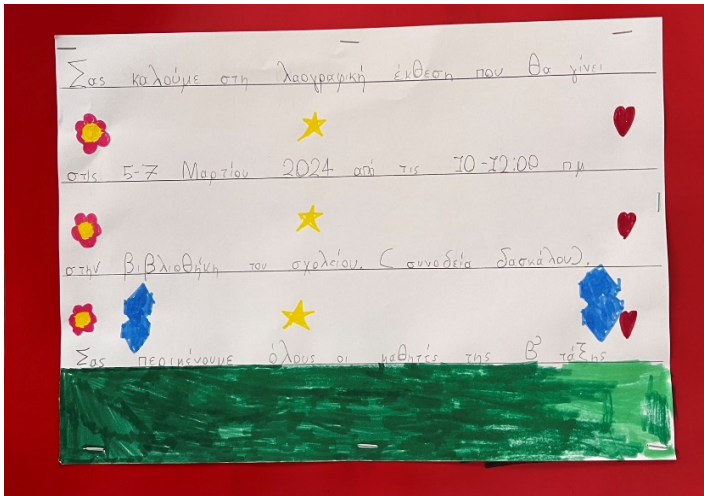 Σας καλούμε στη λαογραφική έκθεση που θα γίνει
στις 5-7 Μαρτίου 2024 από τις 10-12:00 πμ
στην βιβλιοθήκη του σχολείου. (συνοδεία δασκάλου).
Σας περιμένουμε όλους οι μαθητές της Β' τάξης